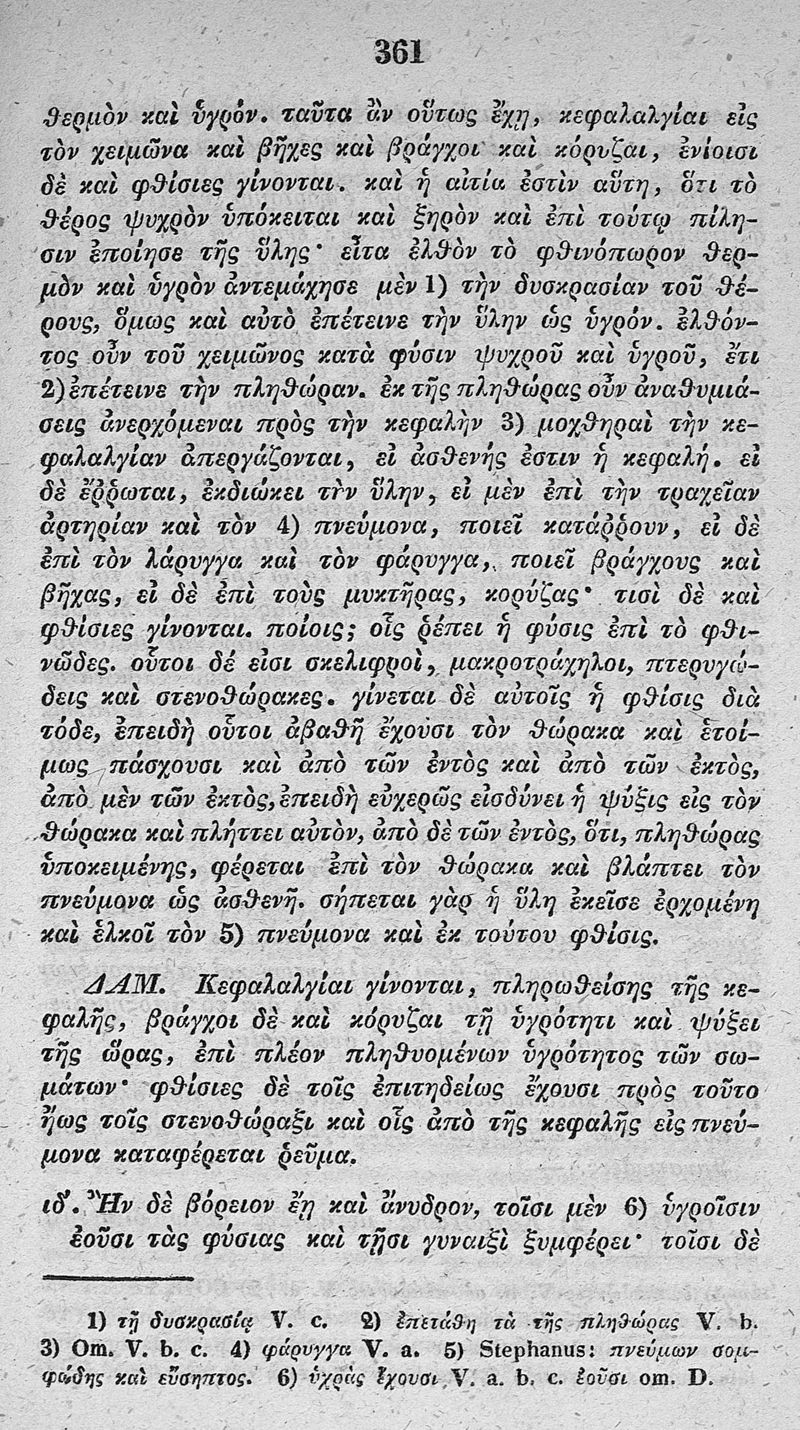 361
θερμὸν καὶ ὑγρόν. ταῦτα ἂν οὕτως ἔχῃ, κεφαλαλγίαι εἰς
τὸν χειμῶνα καὶ βῆχες καὶ βράγχοι καὶ κόρυζαι, ἐνίοισι
δὲ καὶ φθίσιες γίνονται. καὶ ἡ αἰτία ἐστὶν αὕτη, ὅτι τὸ
θέρος ψυχρὸν ὑπόκειται καὶ ξηρὸν καὶ ἐπὶ τούτῳ πίλη-
σιν ἐποίησε τῆς ὕλης· εἶτα ἐλθὸν τὸ φθινόπωρον θερ-
μὸν καὶ ὑγρὸν ἀντεμάχησε μὲν 1) τὴν δυσκρασίαν τοῦ θέ-
ρους, ὅμως καὶ αὐτὸ ἐπέτεινε τὴν ὕλην ὡς ὑγρόν. ἐλθόν-
τος οὖν τοῦ χειμῶνος κατὰ φύσιν ψυχροῦ καὶ ὑγροῦ, ἔτι
2) ἐπέτεινε τὴν πληθώραν. ἐκ τῆς πληθώρας οὖν ἀναθυμιά-
σεις ἀνερχόμεναι πρὸς τὴν κεφαλὴν 3) μοχθηραὶ τὴν κε-
φαλαλγίαν ἀπεργάζονται, εἰ ἀσθενής ἐστιν ἡ κεφαλή. εἰ
δὲ ἔῤῥωται, ἐκδιώκει τὴν ὕλην, εἰ μὲν ἐπὶ τὴν τραχεῖαν
ἀρτηρίαν καὶ τὸν 4) πνεύμονα, ποιεῖ κατάῤῥουν, εἰ δὲ
ἐπὶ τὸν λάρυγγα καὶ τὸν φάρυγγα, ποιεῖ βράγχους καὶ
βῆχας, εἰ δὲ ἐπὶ τοὺς μυκτῆρας, κορύζας· τισὶ δὲ καὶ
φθίσιες γίνονται. ποίοις; οἷς ῥέπει ἡ φύσις ἐπὶ τὸ φθι-
νῶδες. οὗτοι δέ εἰσι σκελιφροὶ, μακροτράχηλοι, πτερυγώ-
δεις καὶ στενοθώρακες. γίνεται δὲ αὐτοῖς ἡ φθίσις διὰ
τόδε, ἐπειδὴ οὗτοι ἀβαθῆ ἔχουσι τὸν θώρακα καὶ ἑτοί-
μως πάσχουσι καὶ ἀπὸ τῶν ἐντὸς καὶ ἀπὸ τῶν ἐκτὸς,
ἀπὸ μὲν τῶν ἐκτὸς, ἐπειδὴ εὐχερῶς εἰσδύνει ἡ ψύξις εἰς τὸν
θώρακα καὶ πλήττει αὐτὸν, ἀπὸ δὲ τῶν ἐντὸς, ὅτι, πληθώρας
ὑποκειμένης, φέρεται ἐπὶ τὸν θώρακα καὶ βλάπτει τὸν
πνεύμονα ὡς ἀσθενῆ. σήπεται γὰρ ἡ ὕλη ἐκεῖσε ἐρχομένη
καὶ ἑλκοῖ τὸν 5) πνεύμονα καὶ ἐκ τούτου φθίσις.
ΔΑΜ. Κεφαλαλγίαι γίνονται, πληρωθείσης τῆς κε-
φαλῆς, βράγχοι δὲ καὶ κόρυζαι τῇ ὑγρότητι καὶ ψύξει
τῆς ὥρας, ἐπὶ πλέον πληθυομένων ὑγρότητος τῶν σω-
μάτων· φθίσιες δὲ τοῖς ἐπιτηδείως ἔχουσι πρὸς τοῦτο
ἤως τοῖς στενοθώραξι καὶ οἷς ἀπὸ τῆς κεφαλῆς εἰς πνεύ-
μονα καταφέρεται ῥεῦμα.
ιδ'. Ἢν δὲ βόρειον ἔῃ καὶ ἄνυδρον, τοῖσι μὲν 6) ὑγροῖσιν
ἐοῦσι τὰς φύσιας καὶ τῇσι γυναιξὶ ξυμφέρει· τοῖσι δὲ
1) τῇ δυσκρασίᾳ V. c. 2) ἐπετάθη τὰ τῆς πληθώρας V. b.
3) Om. V. b. c. 4) φάρυγγα V. a. 5) Stephanus: πνεύμων σομ-
φώδης καὶ εὔσηπτος. 6) ὑχρὰς ἔχουσι V. a. b. c. ἐοῦσι om. D.